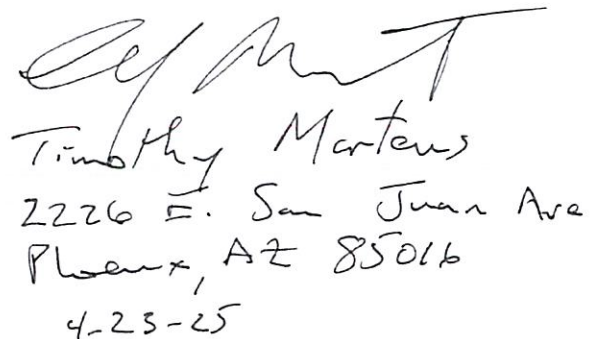 Timothy Martens
2226 E. San Juan Ave
Phoenix, AZ 85016
4-23-25